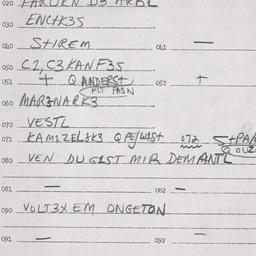 020 FARUKN D3 ARBL
030 ENCHK3S
040 STIREM 041 —
050 C2, C3KANF3S
051 + Q ANDERST, 052 +
MIT PASN
060 MAR3NARK3
070 VESTL
071 KAM1ZEL3K3 Q PE/WIST 072
080 VEN DU G1ST MIR DEMANTL
081 — 082 —
090 VOLT3X EM ONGETON
091 — 092 —